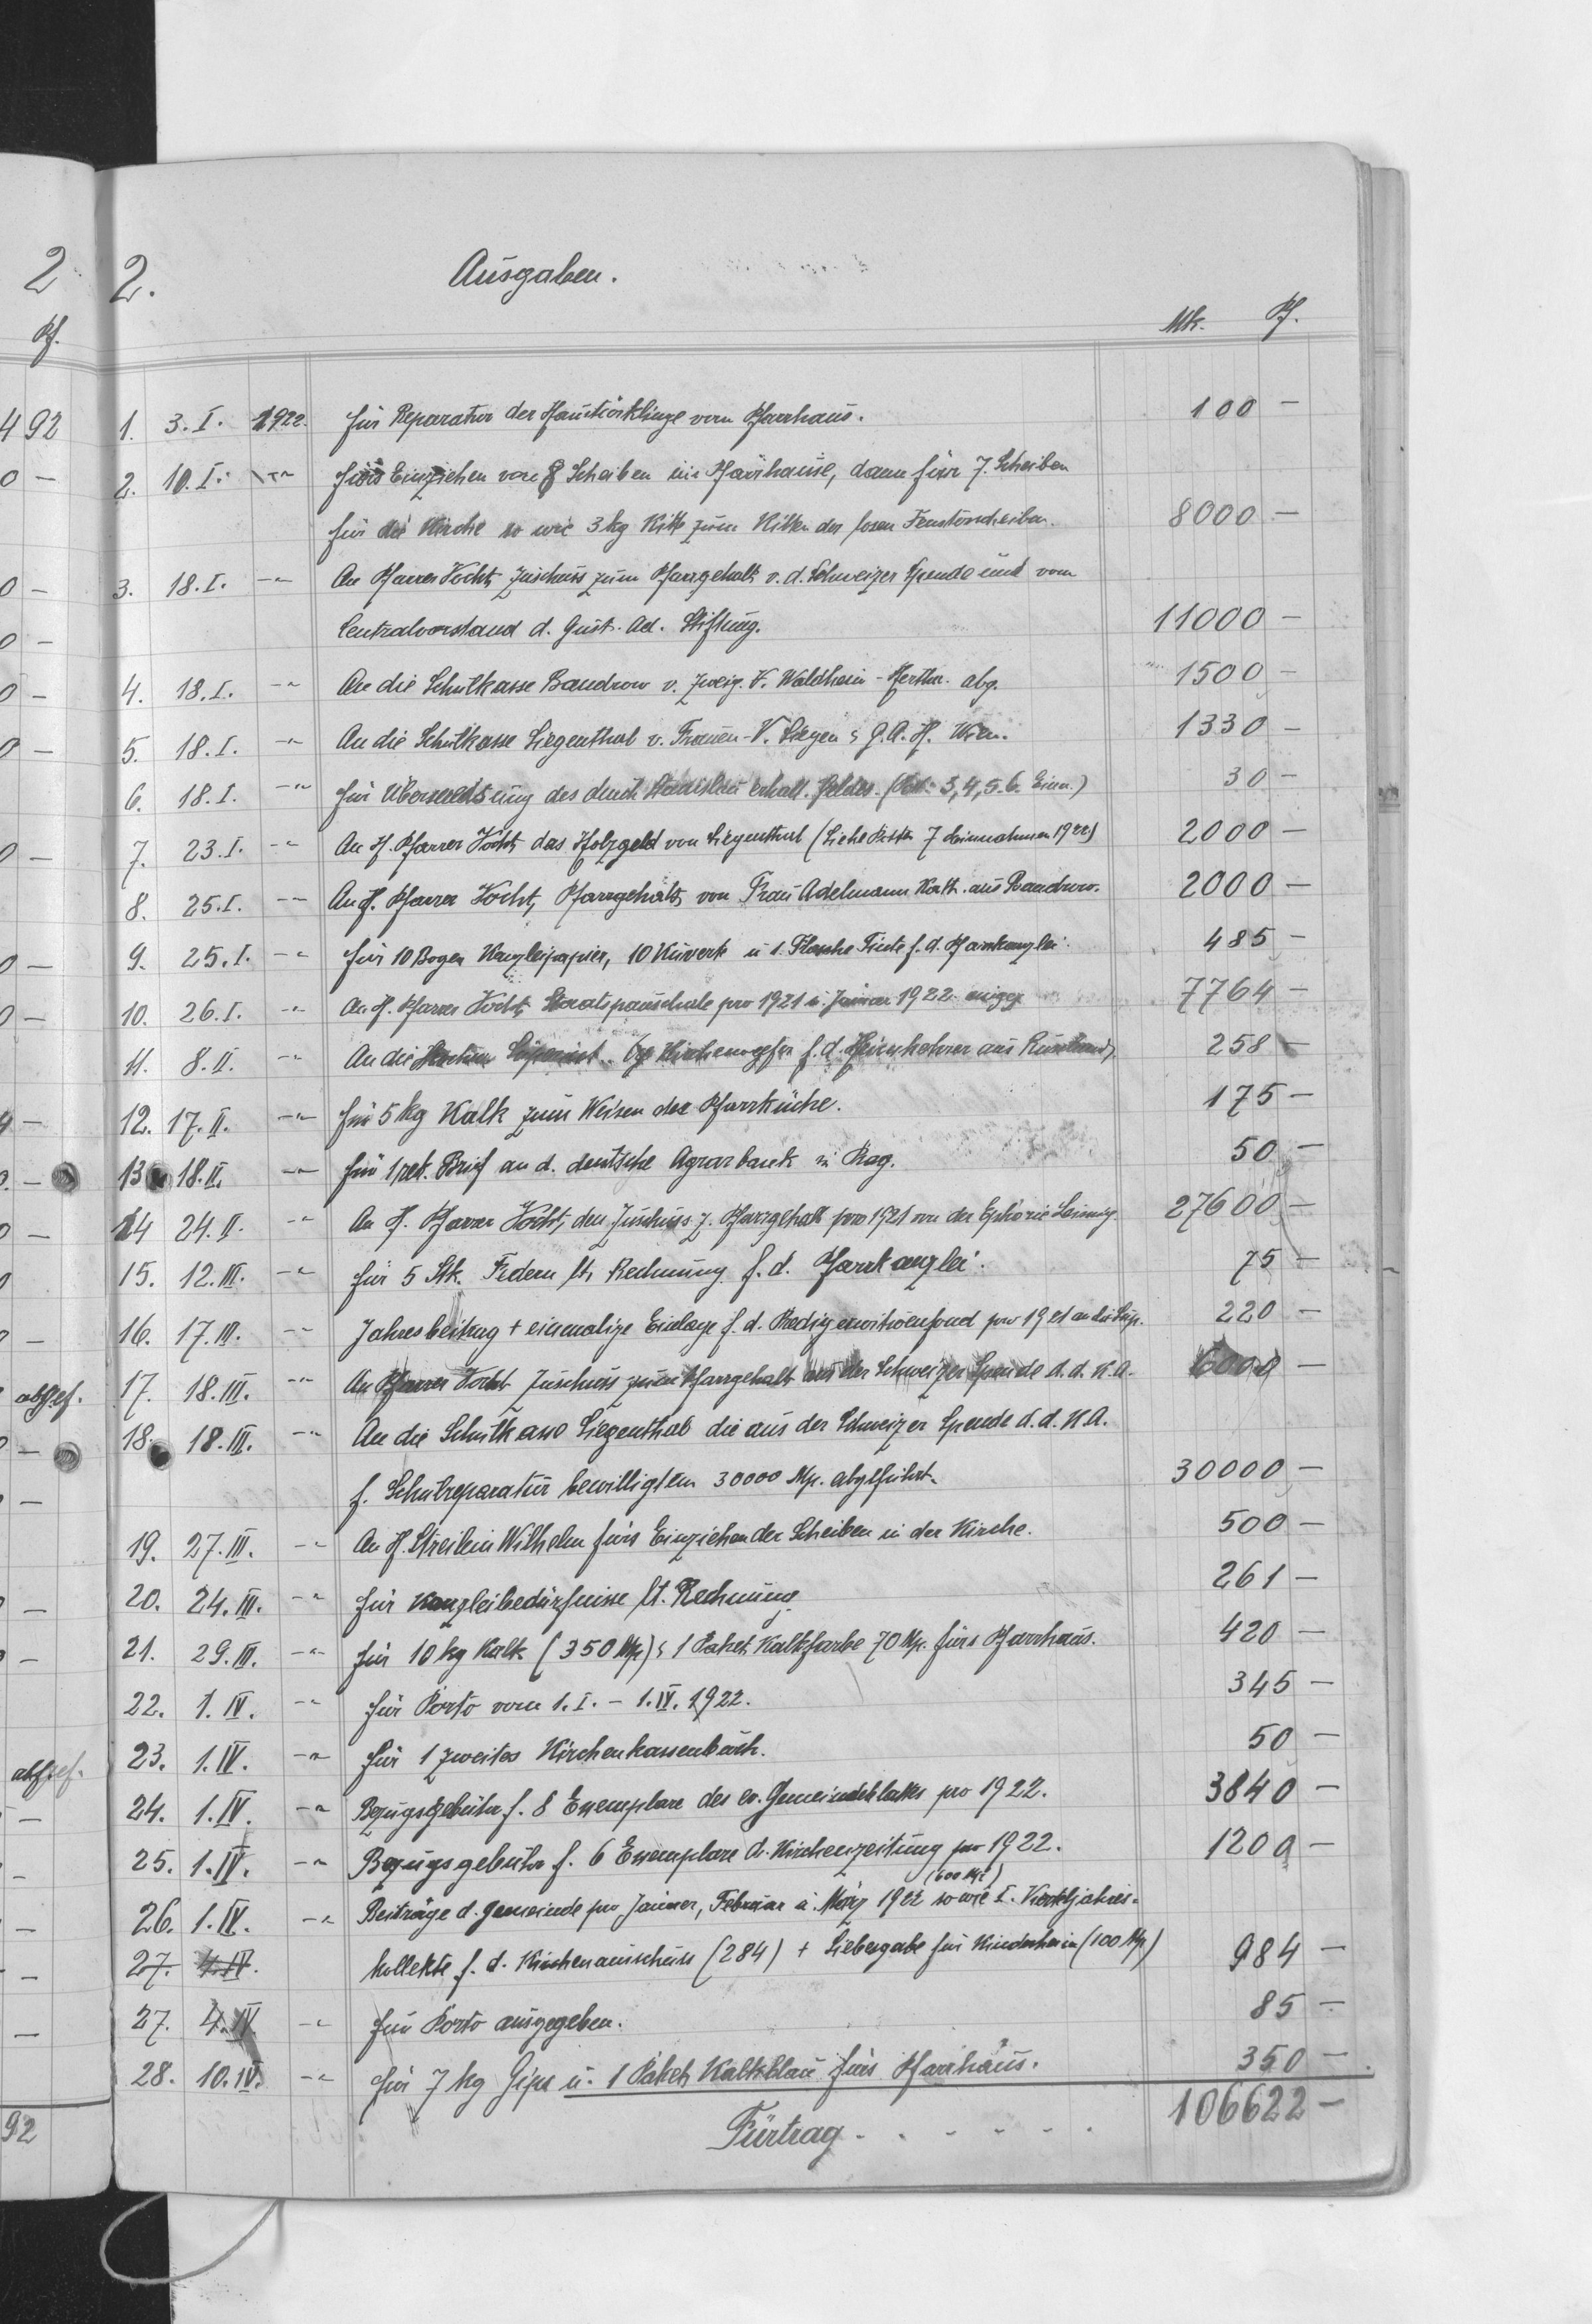 2 2. Ausgaben.
Pf. Mk. Pf.
492 1. 3. I. 1922. für Reparatur der Haustürklinge vom Pfarrhaus. 100 —
0 — 2. 10. I. -"- fürs Einziehen von 8 Scheiben im Pfarrhause, dann für 7. Scheiben
für die Kirche so wie 3 kg Kitt zum Kitten der losen Fensterscheiben. 8000 —
0 — 3. 18. I. -"- An Pfarrer Kocht, Zuschuss zum Pfarrgehalt v. d. Schweizer Spende und vom
0 — Centralvorstand d. Gust. Ad. Stiftung. 11000 —
0 — 4. 18. I. -"- An die Schulkasse Bandrow v. Zweig. V. Waldheim - abg. 1500 —
0 — 5. 18. I. -"- An die Schulkasse Siegenthal v. Frauen-V. Siegen & G. A. Wien. 1330 —
6. 18. I. -"- für Übersendung des durch Stanislau erhalt. Geldes. (Post. 3, 4, 5. 6. Einn.) 30 —
0 — 7. 23. I. -"- An H. Pfarrer Kocht, das Holzgeld von Siegenthal (Siehe Post 7 Einnahmen 1922) 2000 —
8. 25. I. -"- An H. Pfarrer Kocht, Pfarrgehalt, von Frau Adelmann Kath. aus Bandrow. 2000 —
0 — 9. 25. I. -"- für 10 Bogen Kanzleipapier, 10 Kuvert u 1. Flasche Tinte f. d. Pfarrkanzlei. 485 —
0 — 10. 26. I. -"- An H. Pfarrer Kocht, Staatspauschale pro 1921 u. Januar 1922. 7764 —
11. 8. II. -"- An die Kirchenopfer f. d. Heimkehrer aus Russland, 258 —
4 — 12. 17. II. -"- für 5 kg Kalk zum Weisen der Pfarrküche. 175 —
— 13 18. II. -"- für 1 rek. Brief an d. deutsche Agrarbank in Prag. 50 —
0 — 14 24. II. -"- An H. Pfarrer Kocht, den Zuschuss z. Pfarrgehalt pro 1921 von der Ephorie Leisnig. 27600 —
0 15. 12. III. -"- für 5 Stk. Federn lt. Rechnung f. d. Pfarrkanzlei. 75 —
0 — 16. 17. III. -"- Jahresbeitrag + einmalige Einlage f. d. Predigerwitwenfond pro 1921 an die Sup. 220 —
abgef. 17. 18. III. -"- An Pfarrer Kocht Zuschuss zum Pfarrgehalt aus der Schweizer Spende d. d. K. A. 6000 —
0 — 18. 18. III. -"- An die Schulkasse Siegenthal die aus der Schweizer Spende d. d. K. A.
— f. Schulreparatur bewilligten 30000 Mp. abgeführt. 30000 —
19. 27. III. -"- An H. Streilein Wilhelm fürs Einziehen der Scheiben in der Kirche. 500 —
— 20. 24. III. -"- für Kanzleibedürfnisse lt. Rechnung. 261 —
— 21. 29. III. -"- für 10 kg Kalk (350 Mp) & 1 Paket Kalkfarbe 70 Mp. fürs Pfarrhaus. 420 —
22. 1. IV. -"- für Porto vom 1. I. - 1. IV. 1922. 345 —
abgef. 23. 1. IV. -"- für 1 zweites Kirchenkassenbuch. 50 —
— 24. 1. IV. -"- Bezugsgebühr f. 8 Exemplare des ev. Gemeindeblattes pro 1922. 3840 —
— 25. 1. IV. -"- Bezugsgebühr f. 6 Exemplare d. Kirchenzeitung pro 1922. 1200 —
(600 Mp)
— 26. 1. IV. -"- Beiträge d. Gemeinde pro Januar, Februar u. März 1922 so wie I. Vierteljahres-
— 27. 4. IV. kollekte f. d. Kirchenausschuss (284) + Liebesgabe für Kinderheim (100 Mp) 984 —
— 27. 4. IV. -"- für Porto ausgegeben. 85 —
28. 10. IV. -"- für 7 kg Gips u. 1 Paket Kalkblau fürs Pfarrhaus. 350 —
92 Fürtrag . . . . . . 106622 —